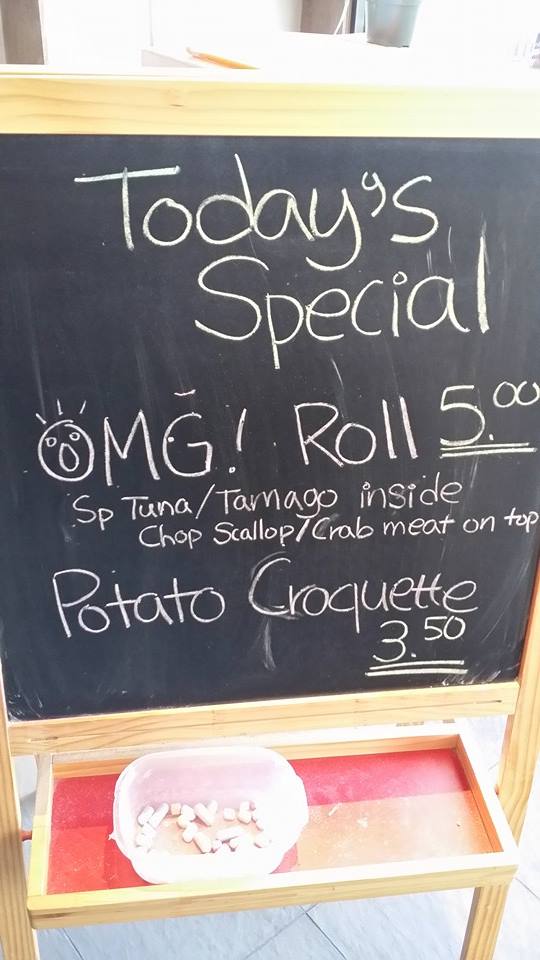 Today's
Special
OMG! Roll 5.00
Sp Tuna/Tamago inside
Chop Scallop/Crab meat on top
Potato Croquette
3.50